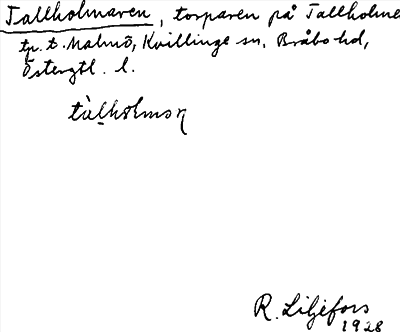 Tallholmaren, torparen på Tallholme
tp. t. Malmö, Kvillinge sn, Bråbo hd,
Östergtl. l.
tàlholmsɳ
R. Liljefors
1928